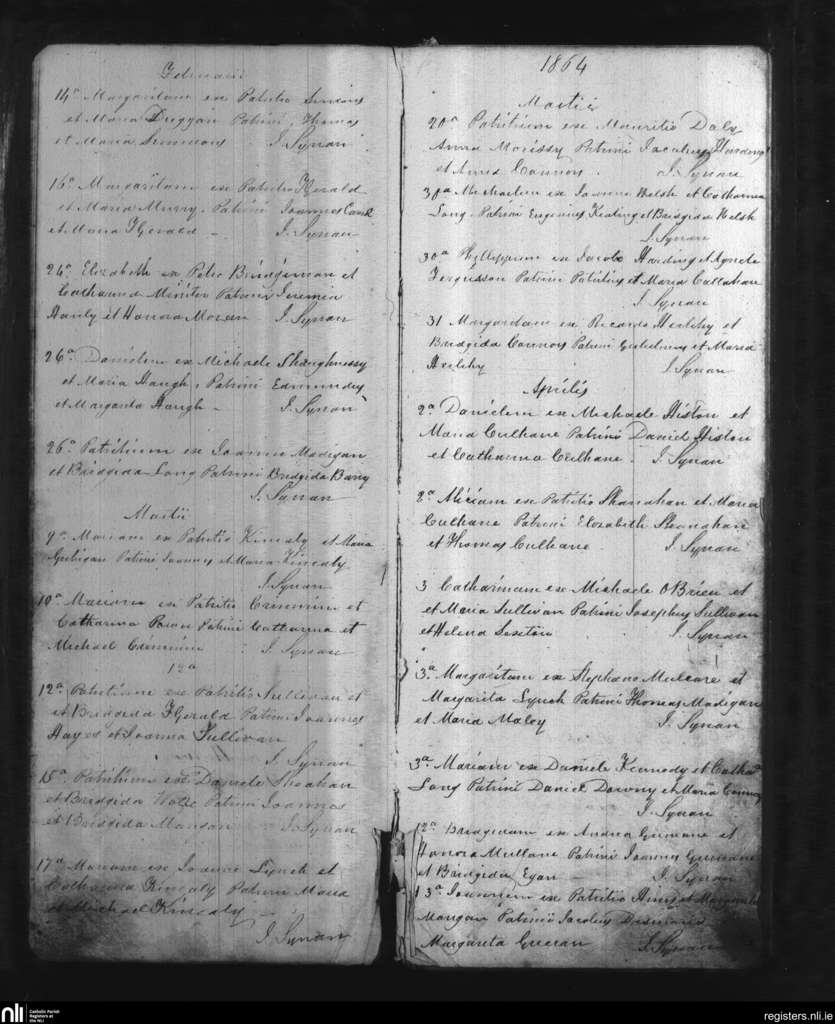 Februarii
14a Margaritam ex Patritio Simons
et Maria Duggan Patrini Thomas
et Maria Simmons J. Synan
16a Margaritam ex Patritio FGerald
et Maria Murry. Patrini Joannes
et Maria FGerald - J. Synan
24a Elizabeth ex Petro Bridgeman et
Catharina Minitor Patrini Jeremia
Hanly et Honora Moran J. Synan
26a Danielem ex Michaele Shaughnessy
et Maria Haugh, Patrini Edmundus
et Margarita Haugh - J. Synan
26a Patritium ex Joanne Madigan
et Bridgida Long Patrini Bridgida Barry
J. Synan
Martii
9a Mariam ex Patritio Kinealy et Maria
Patrini Joannes et Maria Kinealy
J. Synan
10a Mariam ex Patritio Cremmin et
Catharina Patrini Catharina et
Michael Cremmin J. Synan
12a
12a Patritium ex Patritio Sullivan et
et Bridgida FGerald Patrini Joannes
Hayes et Joanna Sullivan
J. Synan
15a Patritium ex Daniele Sheahan
et Bridgida Wolfe Patrini Joannes
et Bridgida Mangan J. Synan
17a Mariam ex Joanne Lynch et
Catharina Kinealy Patrini Maria
et Michael Kinealy -
J. Synan
1864
Martii
20a Patritium ex Mauritio Daly
Anna Morissy Patrini Jacobus Harding
et Anna Connors. J. Synan
30a Michaelem ex Joanne Welsh et Catharina
Long. Patrini Eugenius Keating et Bridgida Welsh
J. Synan
30a Phyllippum ex Jacobo Harding et Agnete
Fergusson Patrini Patritius et Maria Callahan
J. Synan
31 Margaritam ex Ricardo Herlihy et
Bridgida Connors Patrini Gulielmus et Maria
Herlihy J. Synan
Aprilis
2a Danielem ex Michaele Histon et
Maria Culhane Patrini Daniel Histon
et Catharina Culhane. J. Synan
2a Miriam ex Patritio Shanahan et Maria
Culhane Patrini Elizabeth Shanahan
et Thomas Culhane. J. Synan
3 Catharinam ex Michaele OBrien et
et Maria Sullivan Patrini Josephus Sullivan
et Helena Sexton J. Synan
3a Margaritam ex Stephano Mulcare et
Margarita Lynch Patrini Thomas Madigan
et Maria Maloy J. Synan
3a Mariam ex Daniele Kennedy et Catha
Long Patrini Daniel Downy et Maria Connors
J. Synan
12a Bridgidam ex Andrea Guinane et
Honora Mullane Patrini Joannes Guinane
et Bridgida Egan - J. Synan
13a Joannem ex Patritio Hines et Margarita
Mangan Patrini Jacobus
Margareta J. Synan
nli
Catholic Parish
Registers at
the NLI
registers.nli.ie